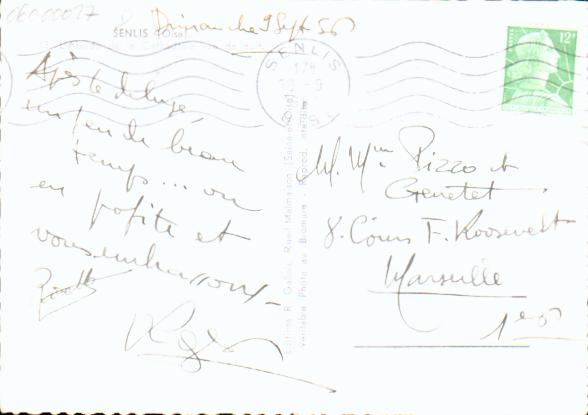 06000027
Dimanche 9 Sept 56
SENLIS (Oise)
Après le déluge
un peu de beau
temps... on
en profite et
vous embrassons-
SENLIS
12F
M. Mme Pizzo et
Genetet
8. Cours F. Roosevelt
Marseille
1er
Editions R. Rueil-Malmaison (Seine-et-Oise)
Véritable Photo au Bromure - Reprod. interdite